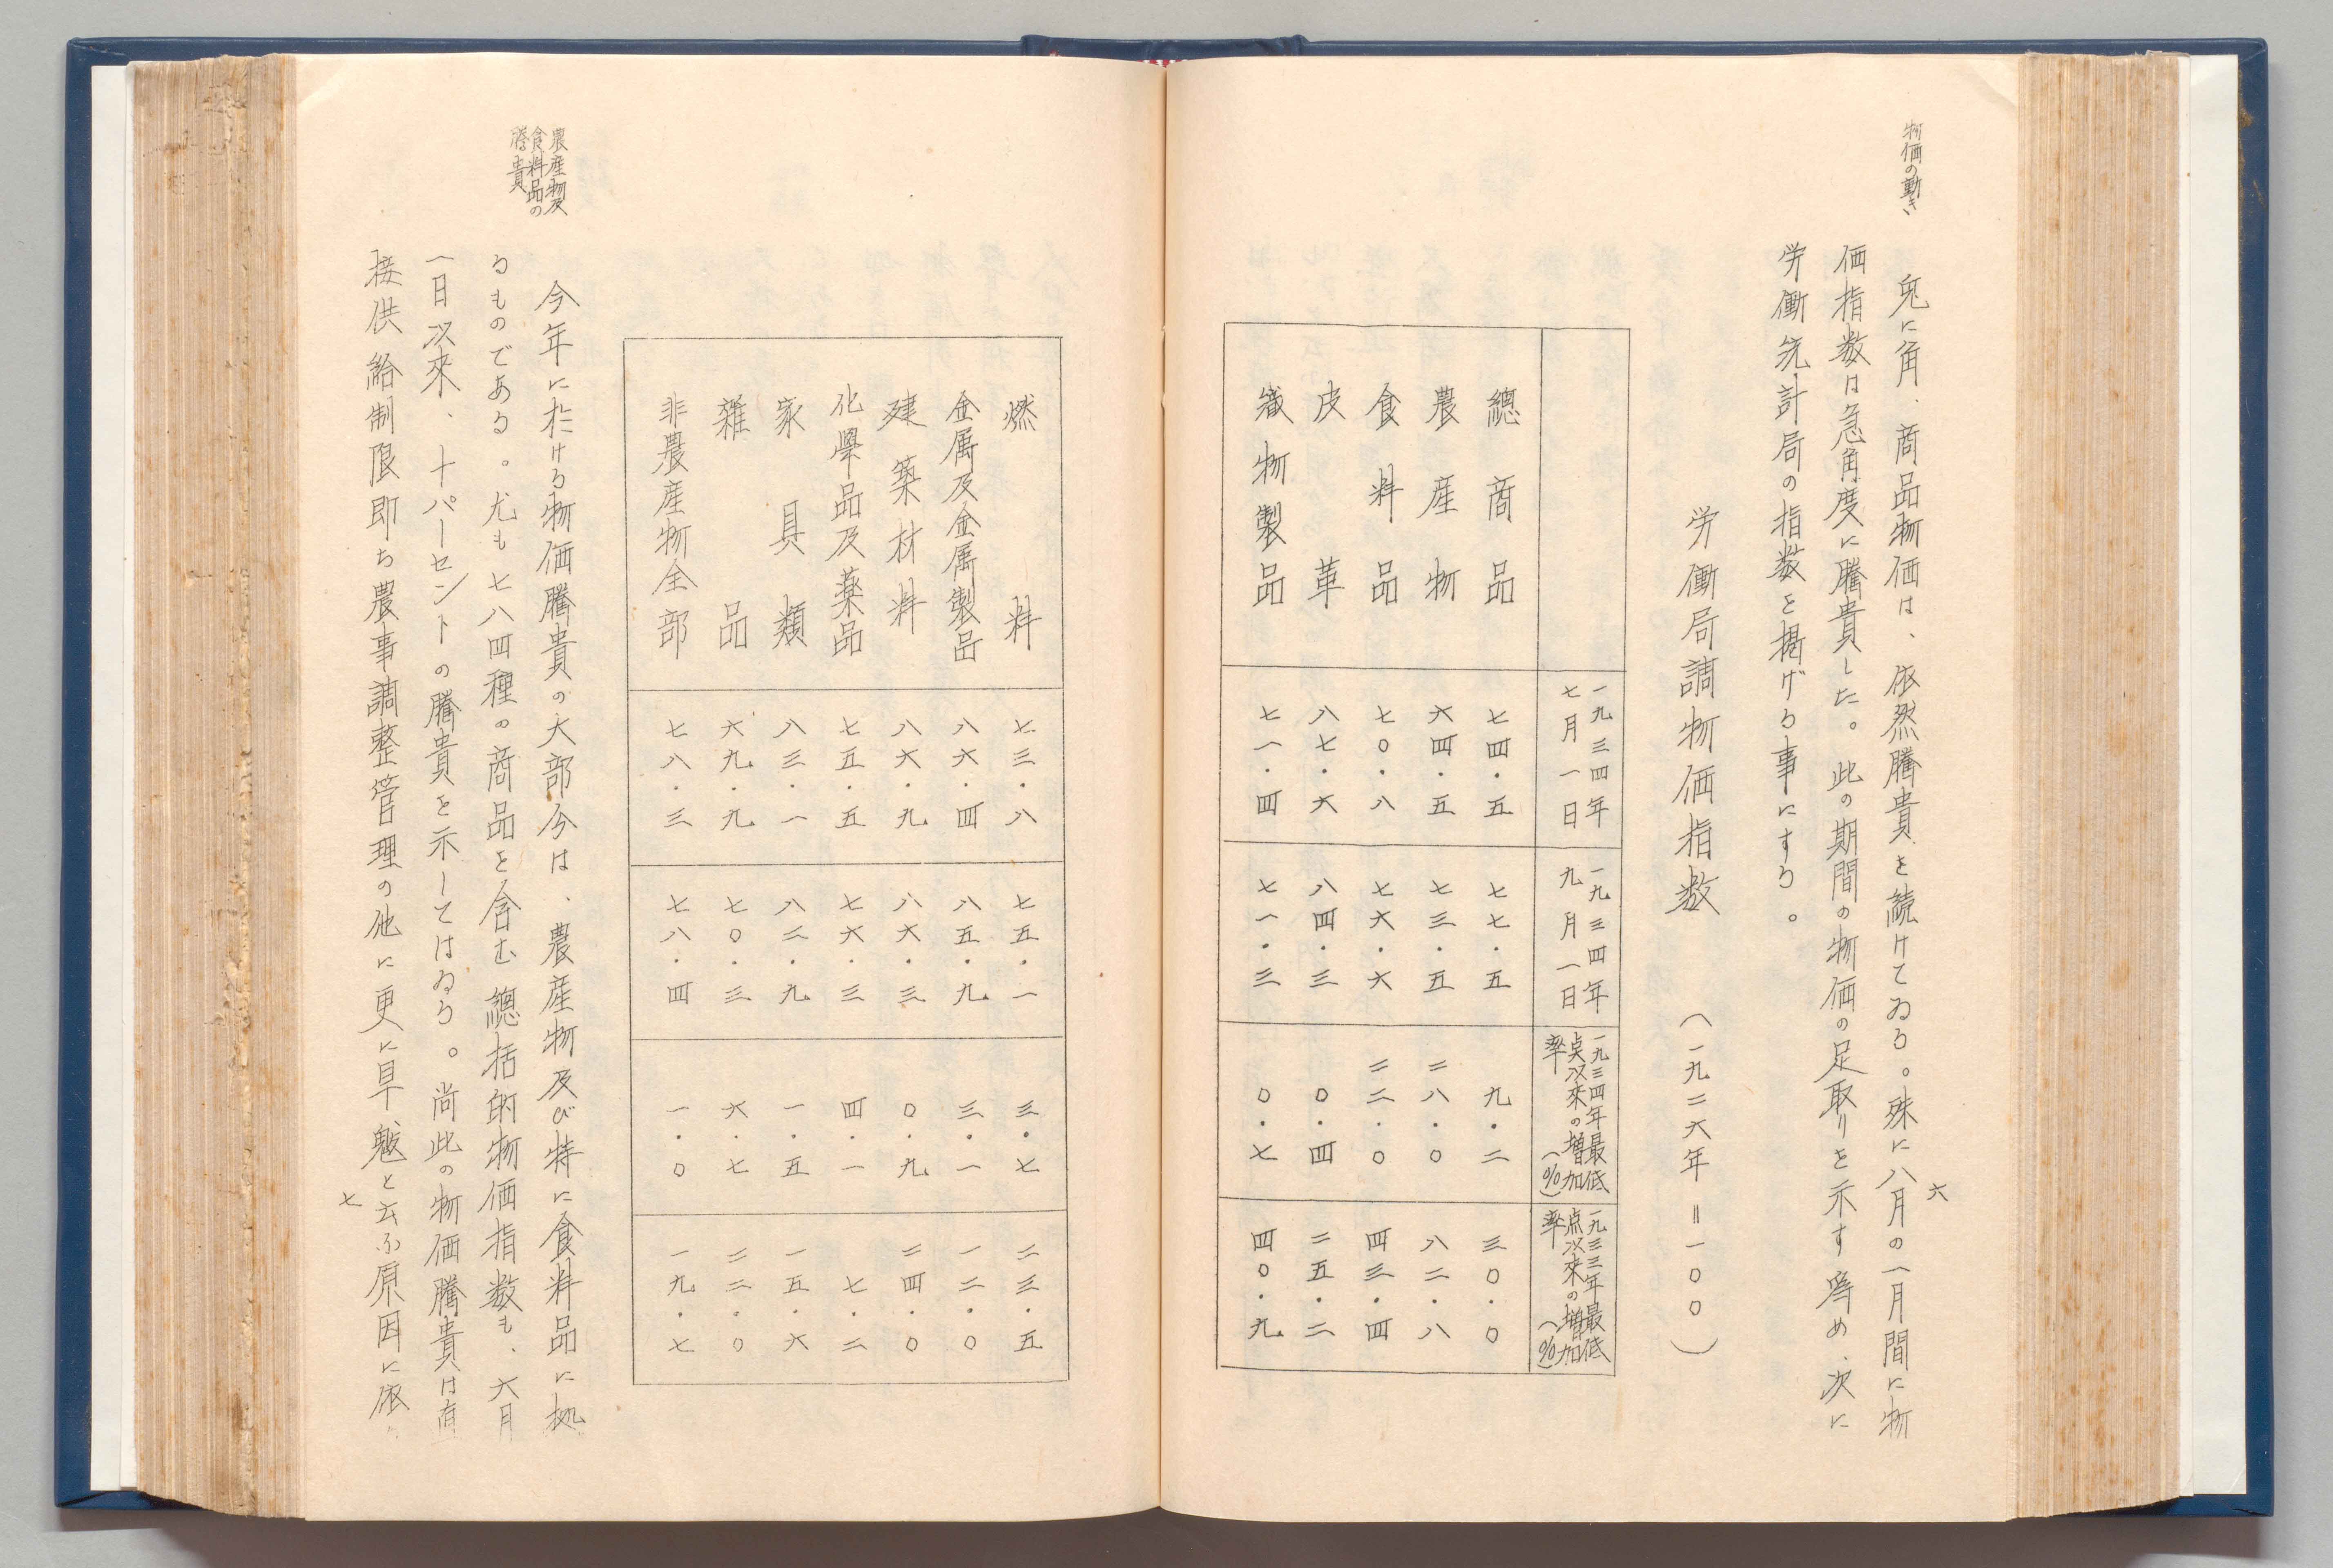 物価の動き
兎に角、商品物価は、依然騰貴を続けてゐる。殊に八月の一月間に物
価指数は急角度に騰貴した。此の期間の物価の足取りを示す為め、次に
労働統計局の指数を掲げる事にする。
労働局調物価指数 （一九二六年＝一〇〇）
一九三四年七月一日
一九三四年九月一日
一九三四年最低点以来の増加率（%）
一九三三年最低点以来の増加率（%）
總商品 七四・五 七七・五 九・二 三〇・〇
農産物 六四・五 七三・五 二八・〇 八二・八
食料品 七〇・八 七六・六 二二・〇 四三・四
皮革 八七・六 八四・三 〇・四 二五・二
織物製品 七一・四 七一・三 〇・七 四〇・九
六
燃料 七三・八 七五・一 三・七 二三・五
金属及金属製品 八六・四 八五・九 三・一 一二・〇
建築材料 八六・九 八六・三 〇・九 二四・〇
化學品及薬品 七五・五 七六・三 四・一 七・二
家具類 八三・一 八二・九 一・五 一五・六
雜品 六九・九 七〇・三 六・七 二二・〇
非農産物全部 七八・三 七八・四 一・〇 一九・七
農産物及食料品の騰貴
今年に於ける物価騰貴の大部分は、農産物及び特に食料品に拠
るものである。尤も七八四種の商品を含む總括的物価指数も、六月
一日以來、十パーセントの騰貴を示してはゐる。尚此の物価騰貴は直
接供給制限即ち農事調整管理の他に更に旱魃と云ふ原因に依
七